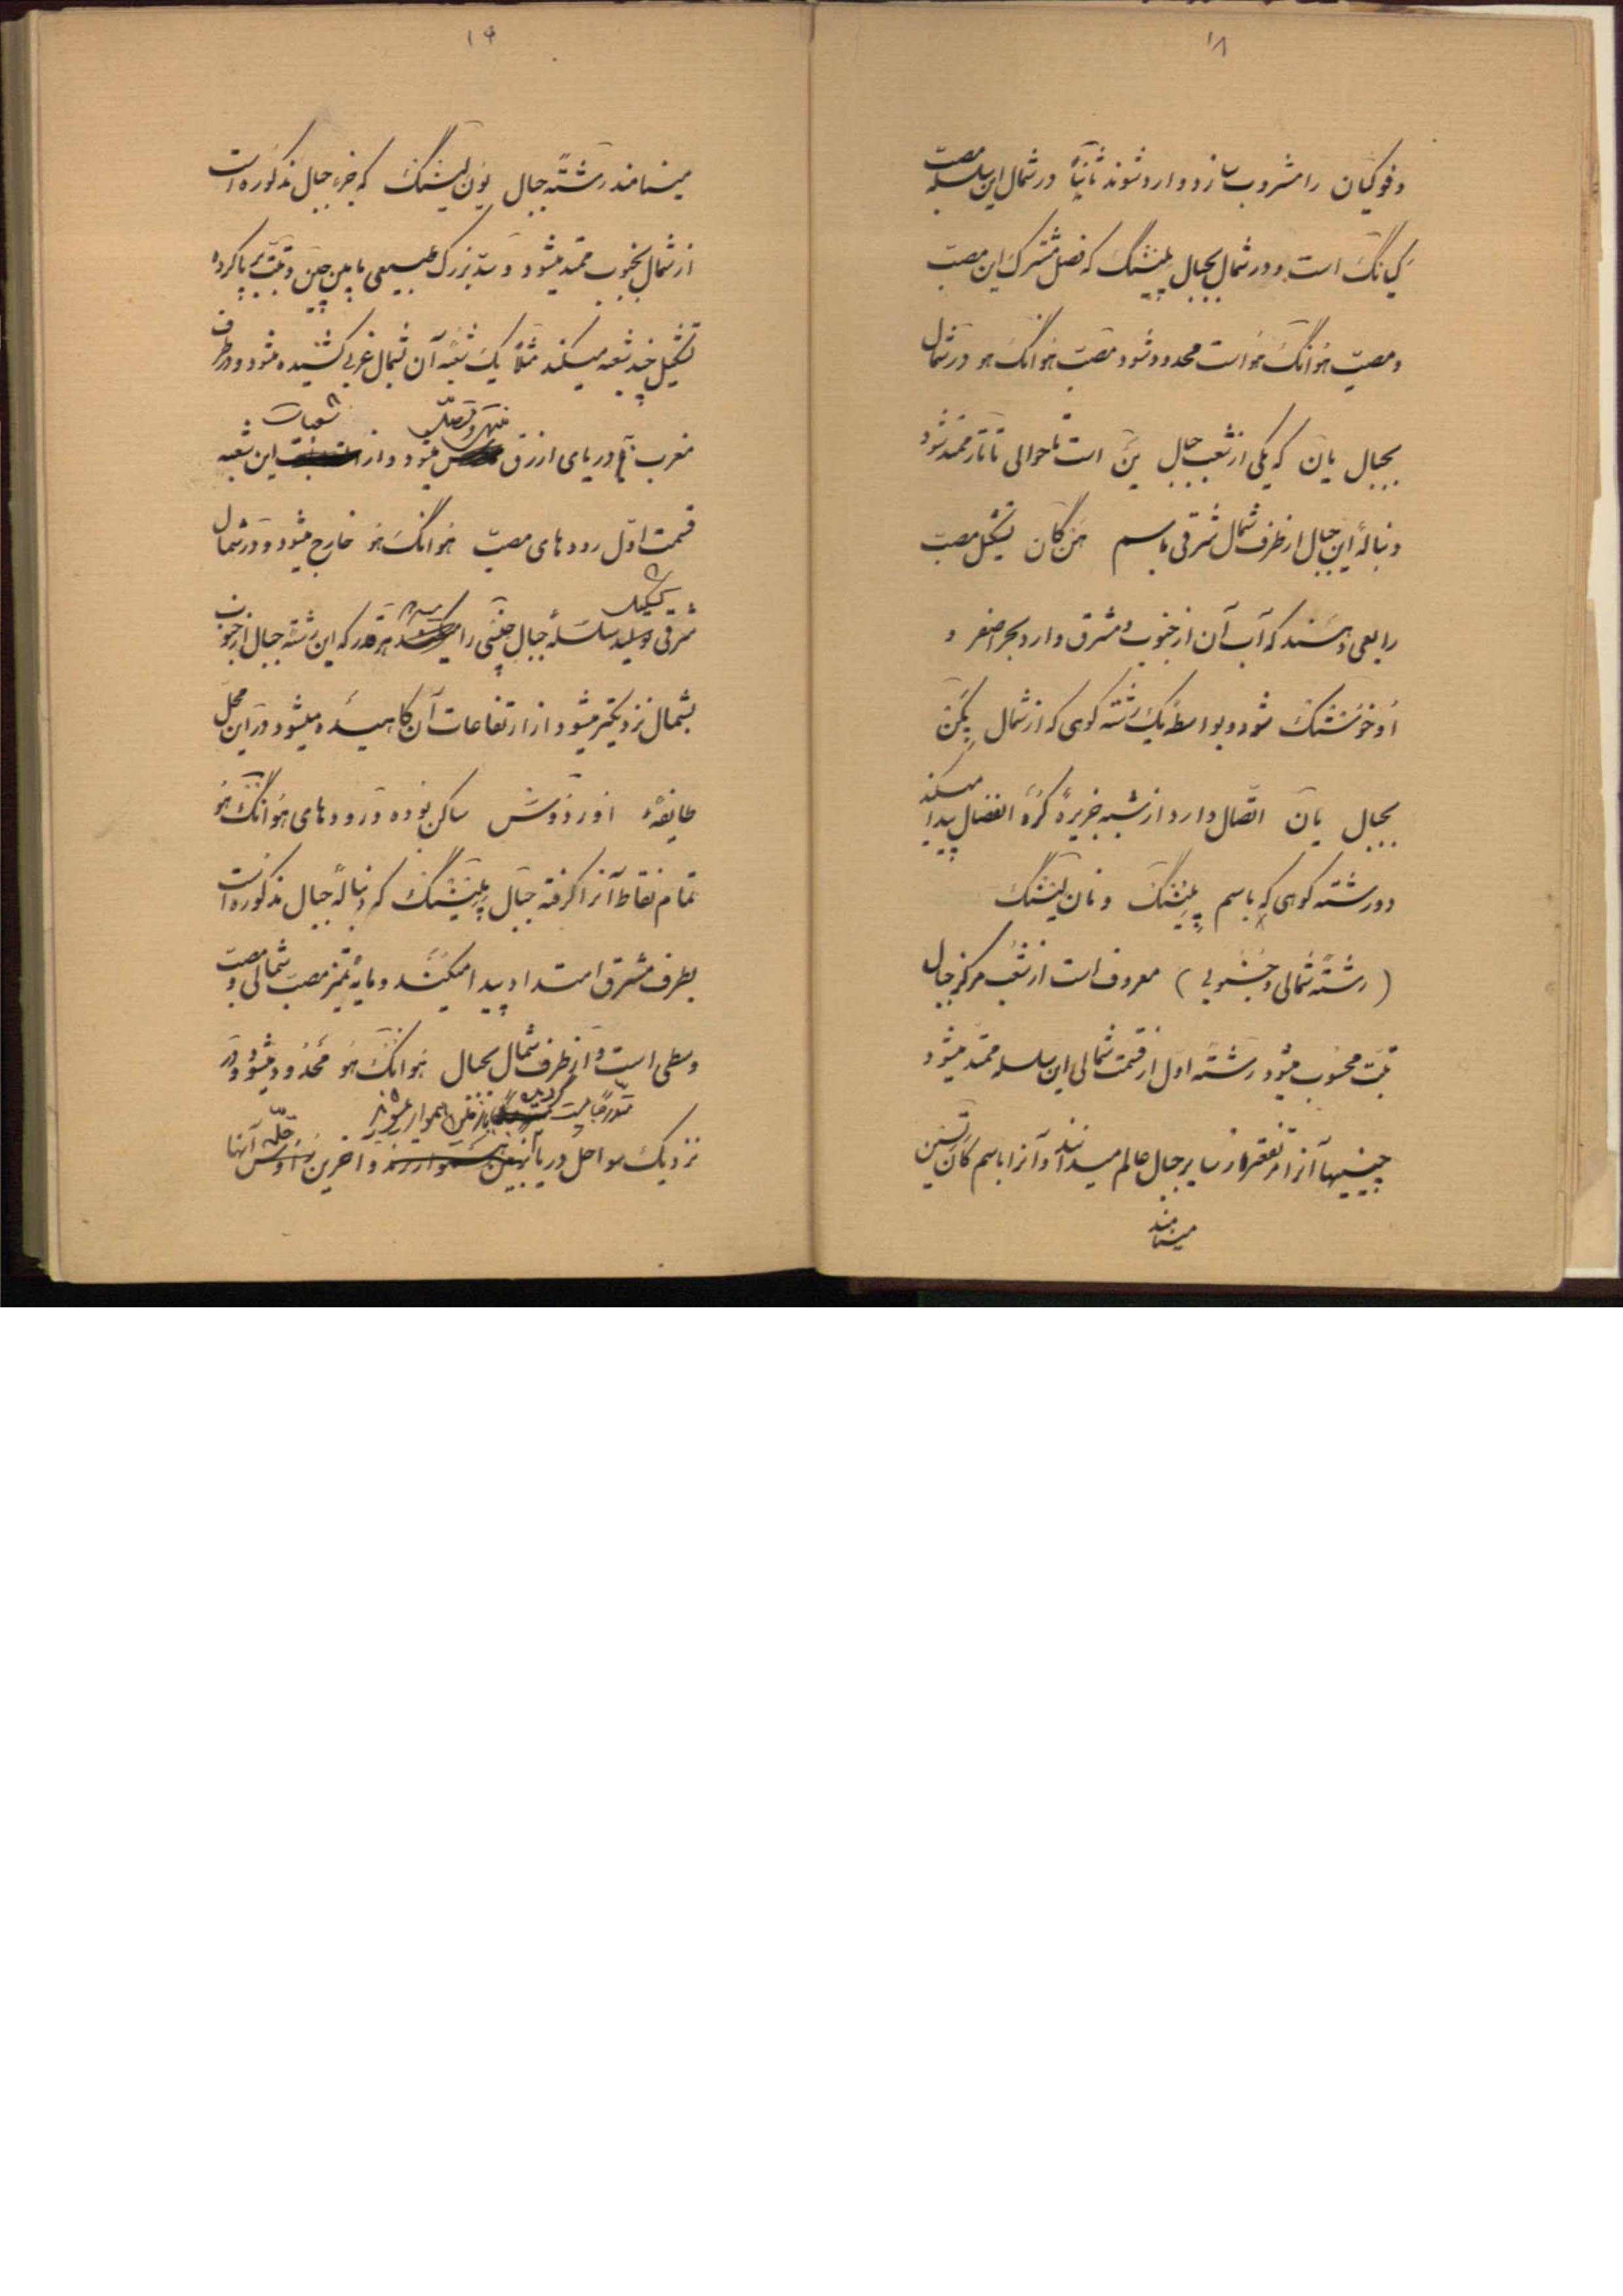 ۱۸
و فوکیان را مشروب سازد و وارد شوند ثانیاً در شمال این سلسله مصب
کیانگ است و در شمال بجبال پلینشنگ که فصل مشترک این مصب
و مصب هوانگ هو است محدود شود مصب هوانگ هو در شمال
بجبال یان که یکی از شعب جبال ین است تا حوالی تاتار ممتد شود
دنبالهٔ این جبال از طرف شمال شرقی باسم هن کان تشکیل مصب
رابعی دهند که آب آن از جنوب و مشرق وارد بحر اصفر و
شود و بواسطه یک رشته کوهی که از شمال پکن
بجبال یان اتصال دارد از شبه جزیرهٔ کره انفصال پیدا میکند
دو رشته کوهی که باسم پلینشنگ و نان لینشنگ
(رشتهٔ شمالی و جنوبی) معروف است از شعب مرکز جبال
تبت محسوب میشود رشته اول از قسمت شمالی این سلسله ممتد میشود
چینیها آنرا مرتفعتر از سایر جبال عالم میدانند و آنرا باسم
مینامند
۱۹
مینامند رشتهٔ جبال یون لینشنگ که جزء جبال مذکوره است
از شمال بجنوب ممتد میشود و سدّ بزرگ طبیعی مابین چین و تبت برپا کرده
تشکیل چند شعبه میکند مثلا یک شعبهٔ آن بشمال غربی کشیده میشود و در طرف
مغرب بدریای ازرق منتهی و متصل میشود و از شعبات این شعبه
قسمت اوّل رودهای مصب هوانگ هو خارج میشود و در شمال
شرقی تشکیل سلسلهٔ جبال چینی را میدهد هر قدر که این رشته جبال از جنوب
بشمال نزدیکتر میشود از ارتفاعات آن کاهیده میشود در این محل
طایفهٔ اورذوش ساکن بوده و رودهای هوانگ هو
تمام نقاط آنرا گرفته جبال پلینشنگ که دنبالهٔ جبال مذکوره است
بطرف مشرق امتداد پیدا میکند و مایهٔ تمیز مصب شمالی و مصب
وسطی است و از طرف شمال بجبال هوانگ هو محدود میشود و در
نزدیک سواحل دریا بتدریج پست گردیده با زمین هموار میشود و آخرین قلّه آنها